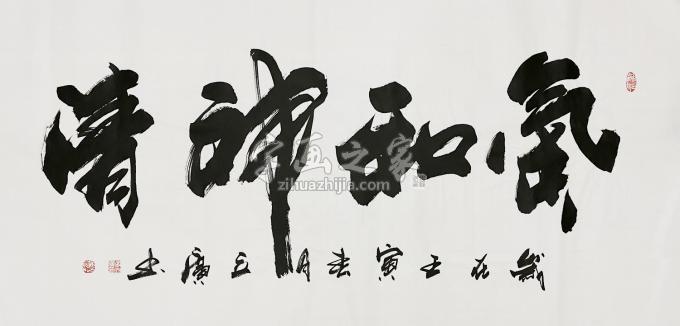 氣和神清
歲在壬寅春月廣书
字画之家
zihuazhijia.com